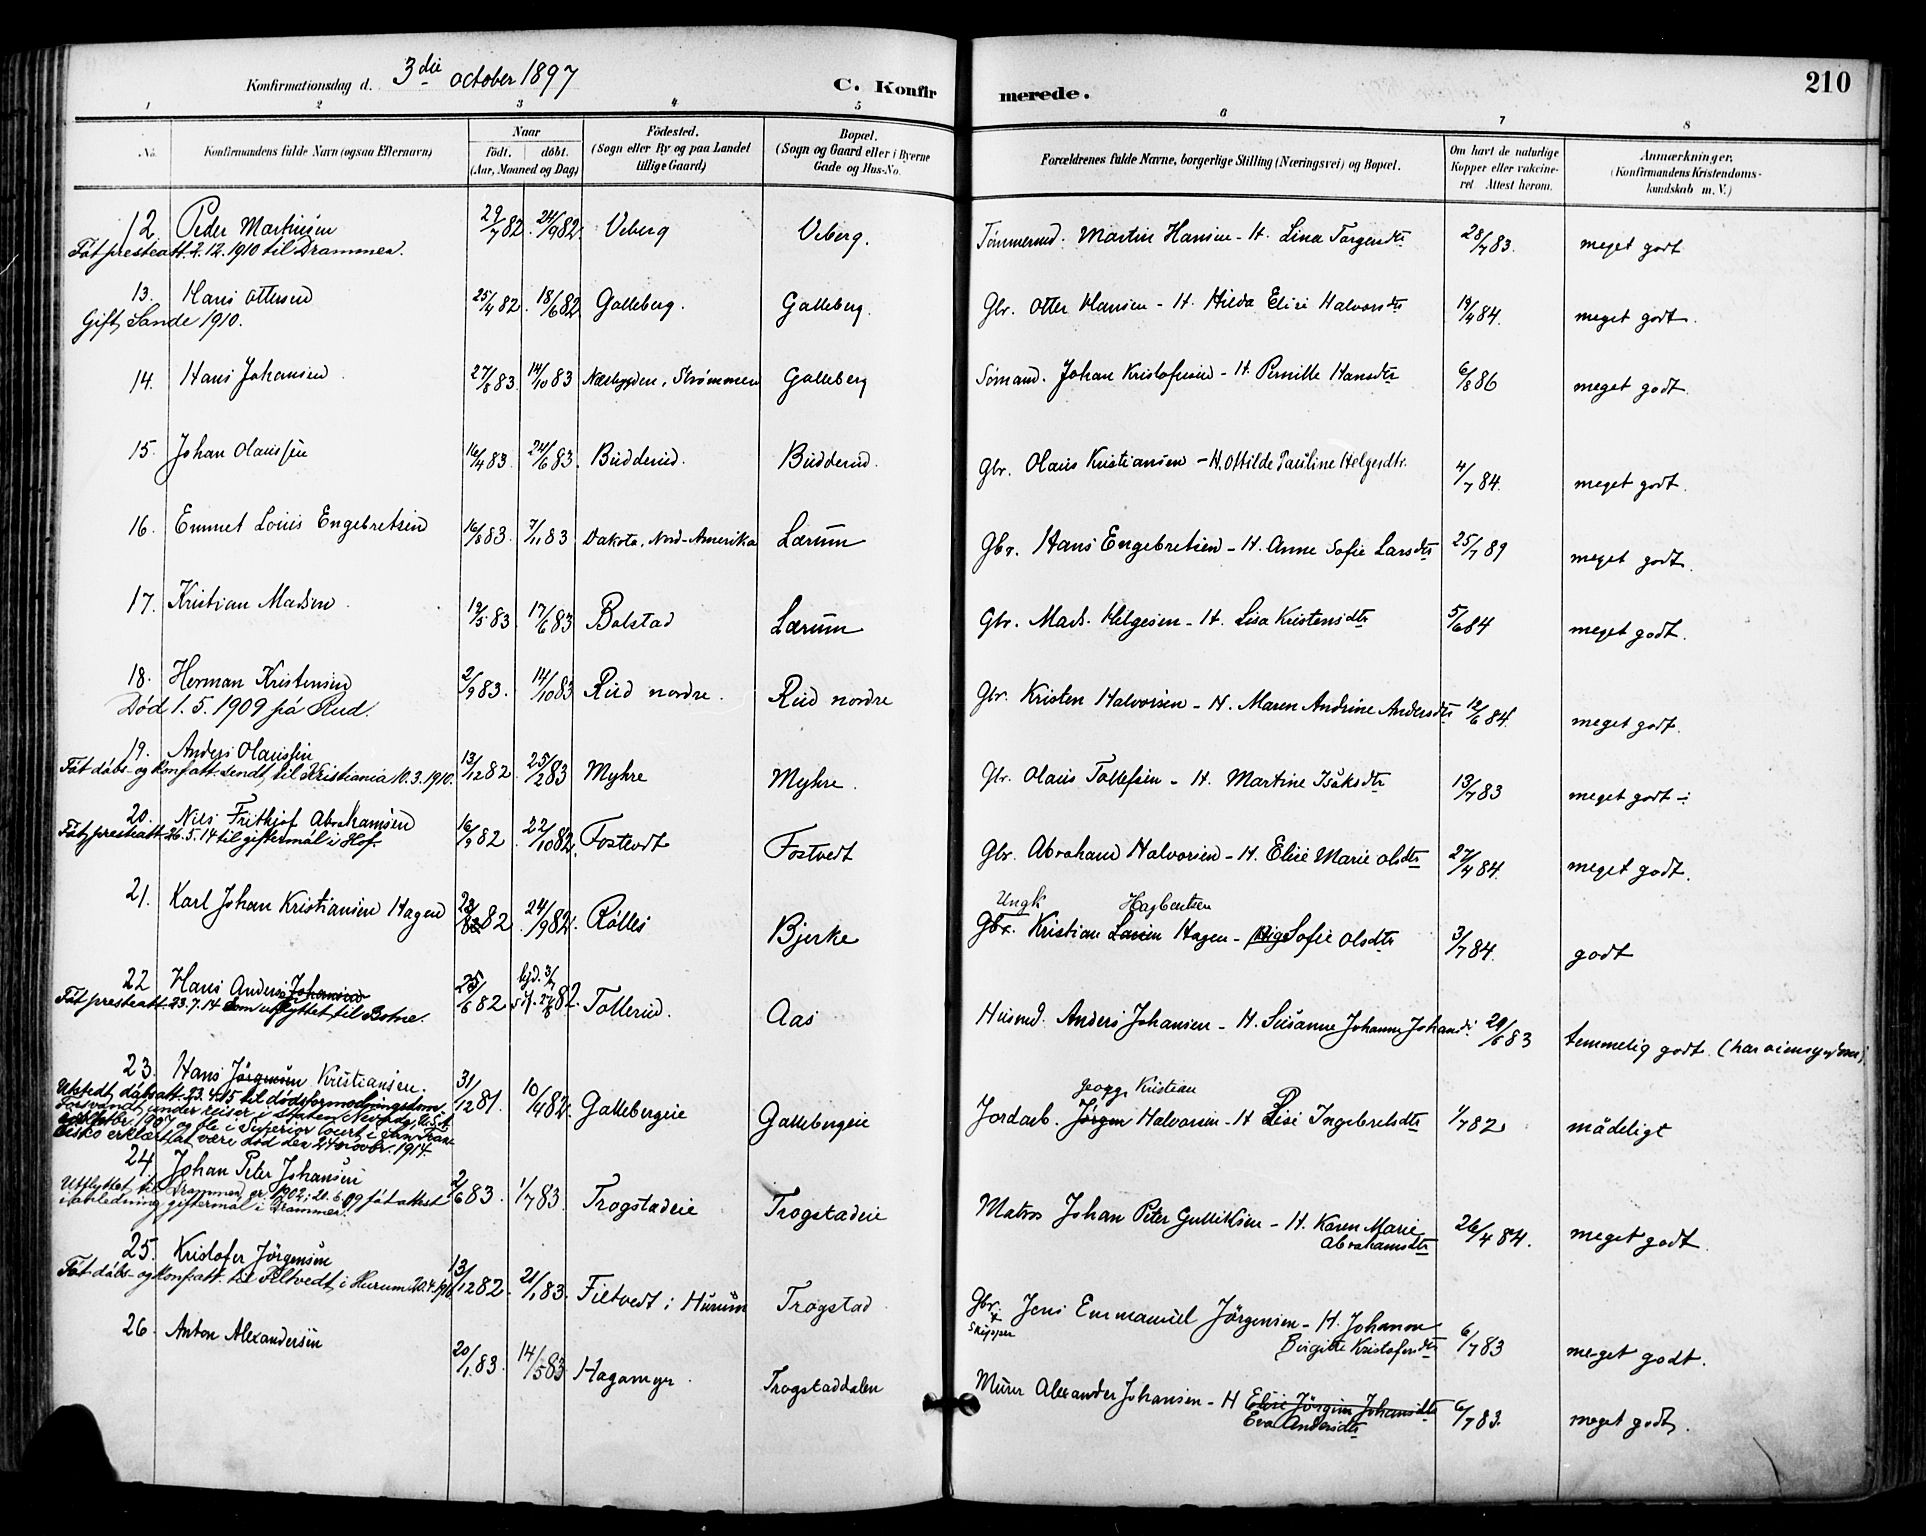 Konfirmationsdag d. 3die october 1897
C. Konfirmerede.
210
1 2 3 4 5 6 7 8
No.
Konfirmandens fulde Navn (ogsaa Efternavn)
Naar
født. døbt.
(Aar, Maaned og Dag)
Födested.
(Sogn eller By og paa Landet
tillige Gaard)
Bopæl.
(Sogn og Gaard eller i Byerne
Gade og Hus-No.
Forældrenes fulde Navne, borgerlige Stilling (Næringsvei) og Bopæl.
Om havt de naturlige
Kopper eller vakcine-
ret Attest herom.
Anmærkninger.
(Konfirmandens Kristendoms-
kundskab m. V.)
12 Peder Martinsen 29/7 82. 24/9 82. Veberg Veberg. Tømmermd. Martin Hansen - H. Lina Torgersdtr 28/7 83. meget godt
Fåt presteatt. 2.12.1910 til Drammen.
13. Hans Ottersen 25/4 82. 18/6 82 Galleberg. Galleberg. Gbr. Otter Hansen - H. Hilda Elise Halvorsdtr 19/4 84. meget godt.
Gift, Sande 1910.
14. Hans Johansen 27/8 83. 14/10 83 Næsbygden, Strømmen Galleberg Sømand. Johan Kristofersen - H. Pernille Hansdtr 6/8 86 meget godt.
15. Johan Olaussen 16/4 83. 24/6 83. Budderud. Budderud. Gbr. Olaus Kristiansen - H. Othilde Pauline Helgesdtr. 4/7 84. meget godt.
16. Emmet Louis Engebretsen 16/8 83. 7/11 83 Dakota, Nord-Amerika Lærum Gbr. Hans Engebretsen - H. Anne Sofie Larsdtr 25/7 89 meget godt.
17. Kristian Madsen. 19/5 83. 17/6 83 Bolstad Lærum Gbr. Mads Helgesen - H. Lisa Kristensdtr 5/6 84 meget godt.
18. Herman Kristensen 2/9 83. 14/10 83 Rud nordre. Rud nordre Gbr. Kristen Halvorsen - H. Maren Andrine Andersdtr 12/6 84. meget godt.
Død 1.5.1909 på Rud.
19. Anders Olaussen 13/12 82 25/2 83 Myhre Myhre. Gbr. Olaus Tollefsen - H. Martine Isaksdtr 13/7 83 meget godt -:
Fåt dåbs- og konf.att. sendt til Kristiania 10.3.1910.
20. Nils Frithjof Abrahamsen 16/9 82. 22/10 82. Fostvedt Fostvedt Gbr. Abraham Halvorsen - H. Elise Marie Olsdtr 27/4 84. meget godt.
Fåt presteatt. 26.5.14 til giftermål i Hof.
21. Karl Johan Kristiansen Hagen 82 24/9 82. Rølles Bjerke Gbr. Kristian Larsen Hagen - Pige Sofie Olsdtr 3/7 84. godt
Ungk Hagbartsen
22 Hans Anders Johansen 25/6 82 82. Tollerud. Aas Husmd. Anders Johansen - H. Susanne Johanne Johansd. 29/6 83 temmelig godt.
Fåt presteatt. 23.7.14 som utflyttet til Botne.
23. Hans Jørgensen Kristiansen. 31/12 81. 10/4 82. Gallebergeie Gallebergeie Jordarb. Jørgen Halvorsen - H Lise Ingebretsdtr 1/7 82 mådeligt
Georg Kristian
Utstedt dåbsatt. 23.4.15 til dødsformodningsdom.
Forsvandt under reiser i Staten Nevada, U.S.A.
1907 og ble i Superior Court i San Fran
cisko erklært at være død den 24 novbr. 1914.
24. Johan Peter Johansen 2/6 83. 1/7 83. Trogstadeie Trogstadeie Matros Johan Peter Gulliksen - H. Karen Marie 26/4 84. meget godt
Abrahamsdtr
Utflyttet til Drammen, 1902; 21.6.09 fåt attest
i anledning giftermål i Drammen.
25. Kristofer Jørgensen 13/12 82. 21/1 83. Filtvedt i Hurum Trogstad Gbr. + Skipper Jens Emmanuel Jørgensen - H. Johanne 6/7 83 meget godt.
Birgitte Kristofersdtr
Fåt dåbs- og konf.att. til Filtvedt i Hurum 20.4.1910.
26. Anton Alexandersen 20/1 83. 14/5 83. Hagamyr. Trogstaddalen Murer Alexander Johansen - H Elise Jørgine Johansdtr 6/7 83. meget godt.
Eva Andersdtr